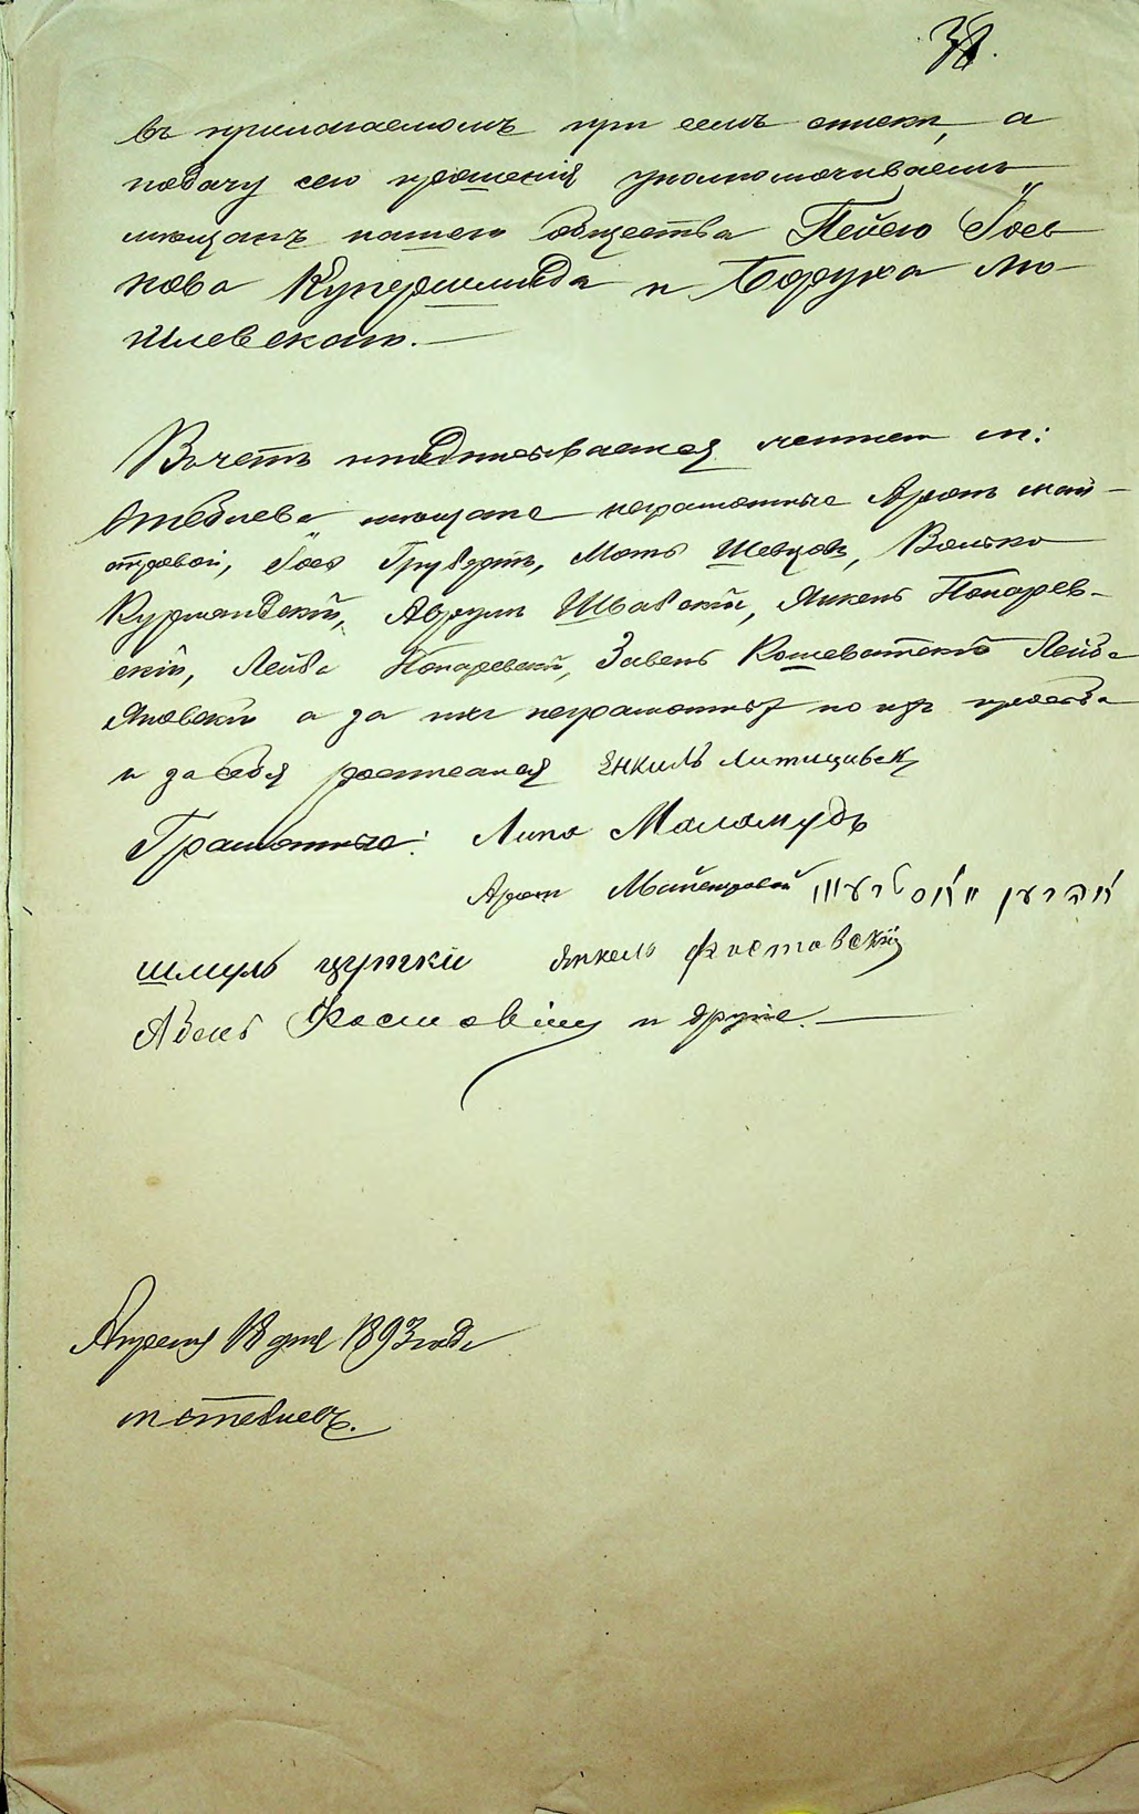 38.
въ прилагаемомъ при семъ списки, а
подачу сего прошенія уполномочиваемъ
мѣщанъ нашего общества Пейсю Іось
кова Купершмида и Боруха Мо
гилевскаго.—
В чемъ и подписываемся мѣщане м:
Стеблева мѣщане неграмотные Аронъ май-
стровой, Іось Грубертъ, Мотъ Шевцовъ, Волько
Курмандскій, Аврумъ Швабскій, Янкель Понарев-
скій, Лейба Понаревскій, Завель Кошеватскій Лейба
Яновскій а за нихъ неграмотныхъ по ихъ просьбѣ
и за себя росписался Енкиль Литищивск
Грамотные: Липа Маламудъ
Аронъ Майстровой אהרען מאסטרעווי
шмуль цуткій Янкель Фастовскій
Абель Фастовскій и другіе.—
Апреля 18 дня 1893 года
м. стеблевъ.